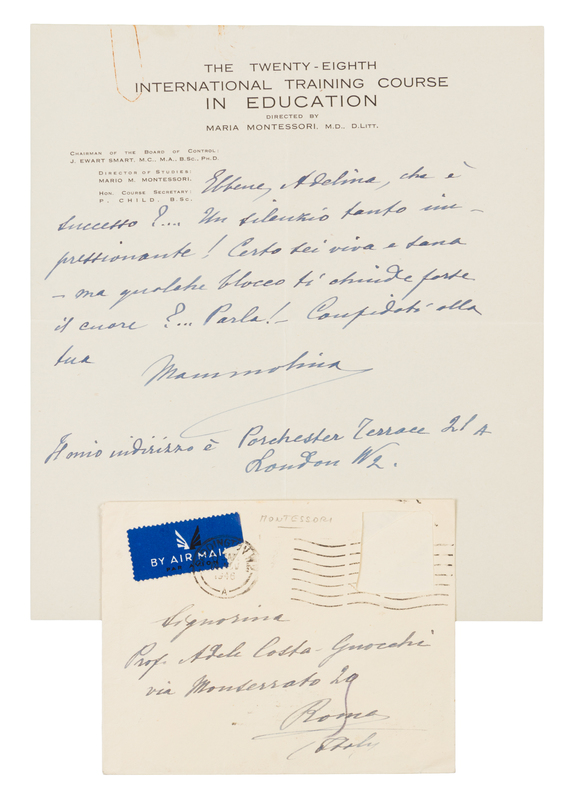 THE TWENTY-EIGHTH
INTERNATIONAL TRAINING COURSE
IN EDUCATION
DIRECTED BY
MARIA MONTESSORI, M.D., D.LITT.
CHAIRMAN OF THE BOARD OF CONTROL:
J. EWART SMART, M.C., M.A., B.SC., PH.D.
DIRECTOR OF STUDIES:
MARIO M. MONTESSORI.
HON. COURSE SECRETARY:
P. CHILD, B.SC.
Ebbene, Adelina, che è
successo?... Un silenzio tanto im-
pressionante! Certo sei viva e sana
- ma qualche blocco ti chiude forse
il cuore?... Parla!- Confidati alla
tua
Mammolina
Il mio indirizzo è Porchester Terrace 21 A
London W2.
MONTESSORI
BY AIR MAIL
PAR AVION
1946
A
Signorina
Prof. Adele Costa-Gnocchi
via Monserrato 29
Roma
Italy